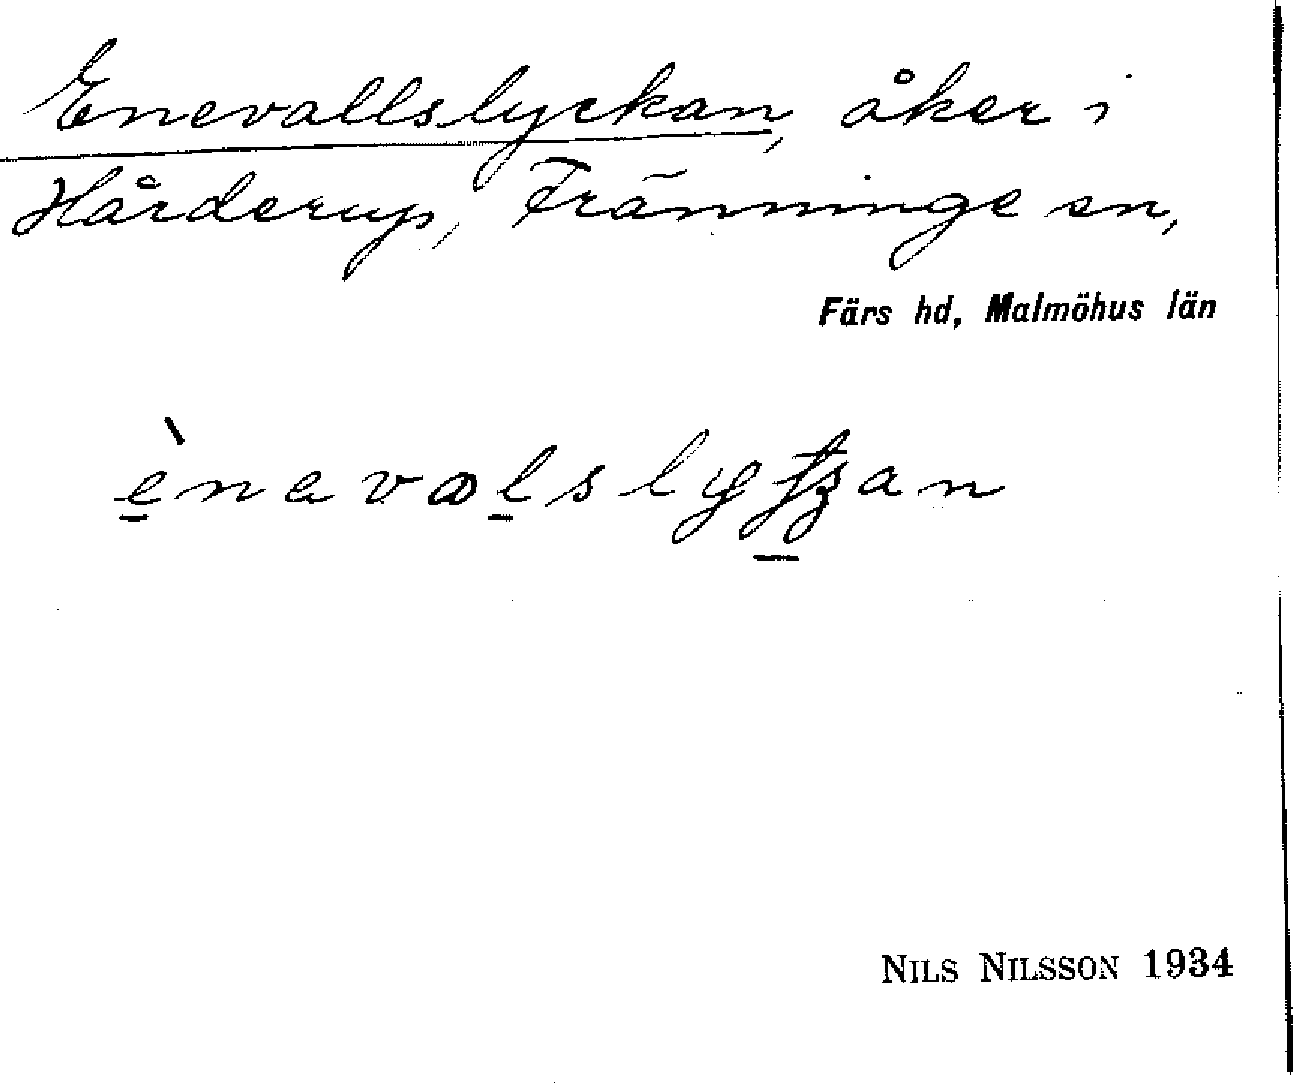 Enevallslyckan, åker i
Hårderup, Fränninge sn,
Färs hd, Malmöhus län
NILS NILSSON 1934